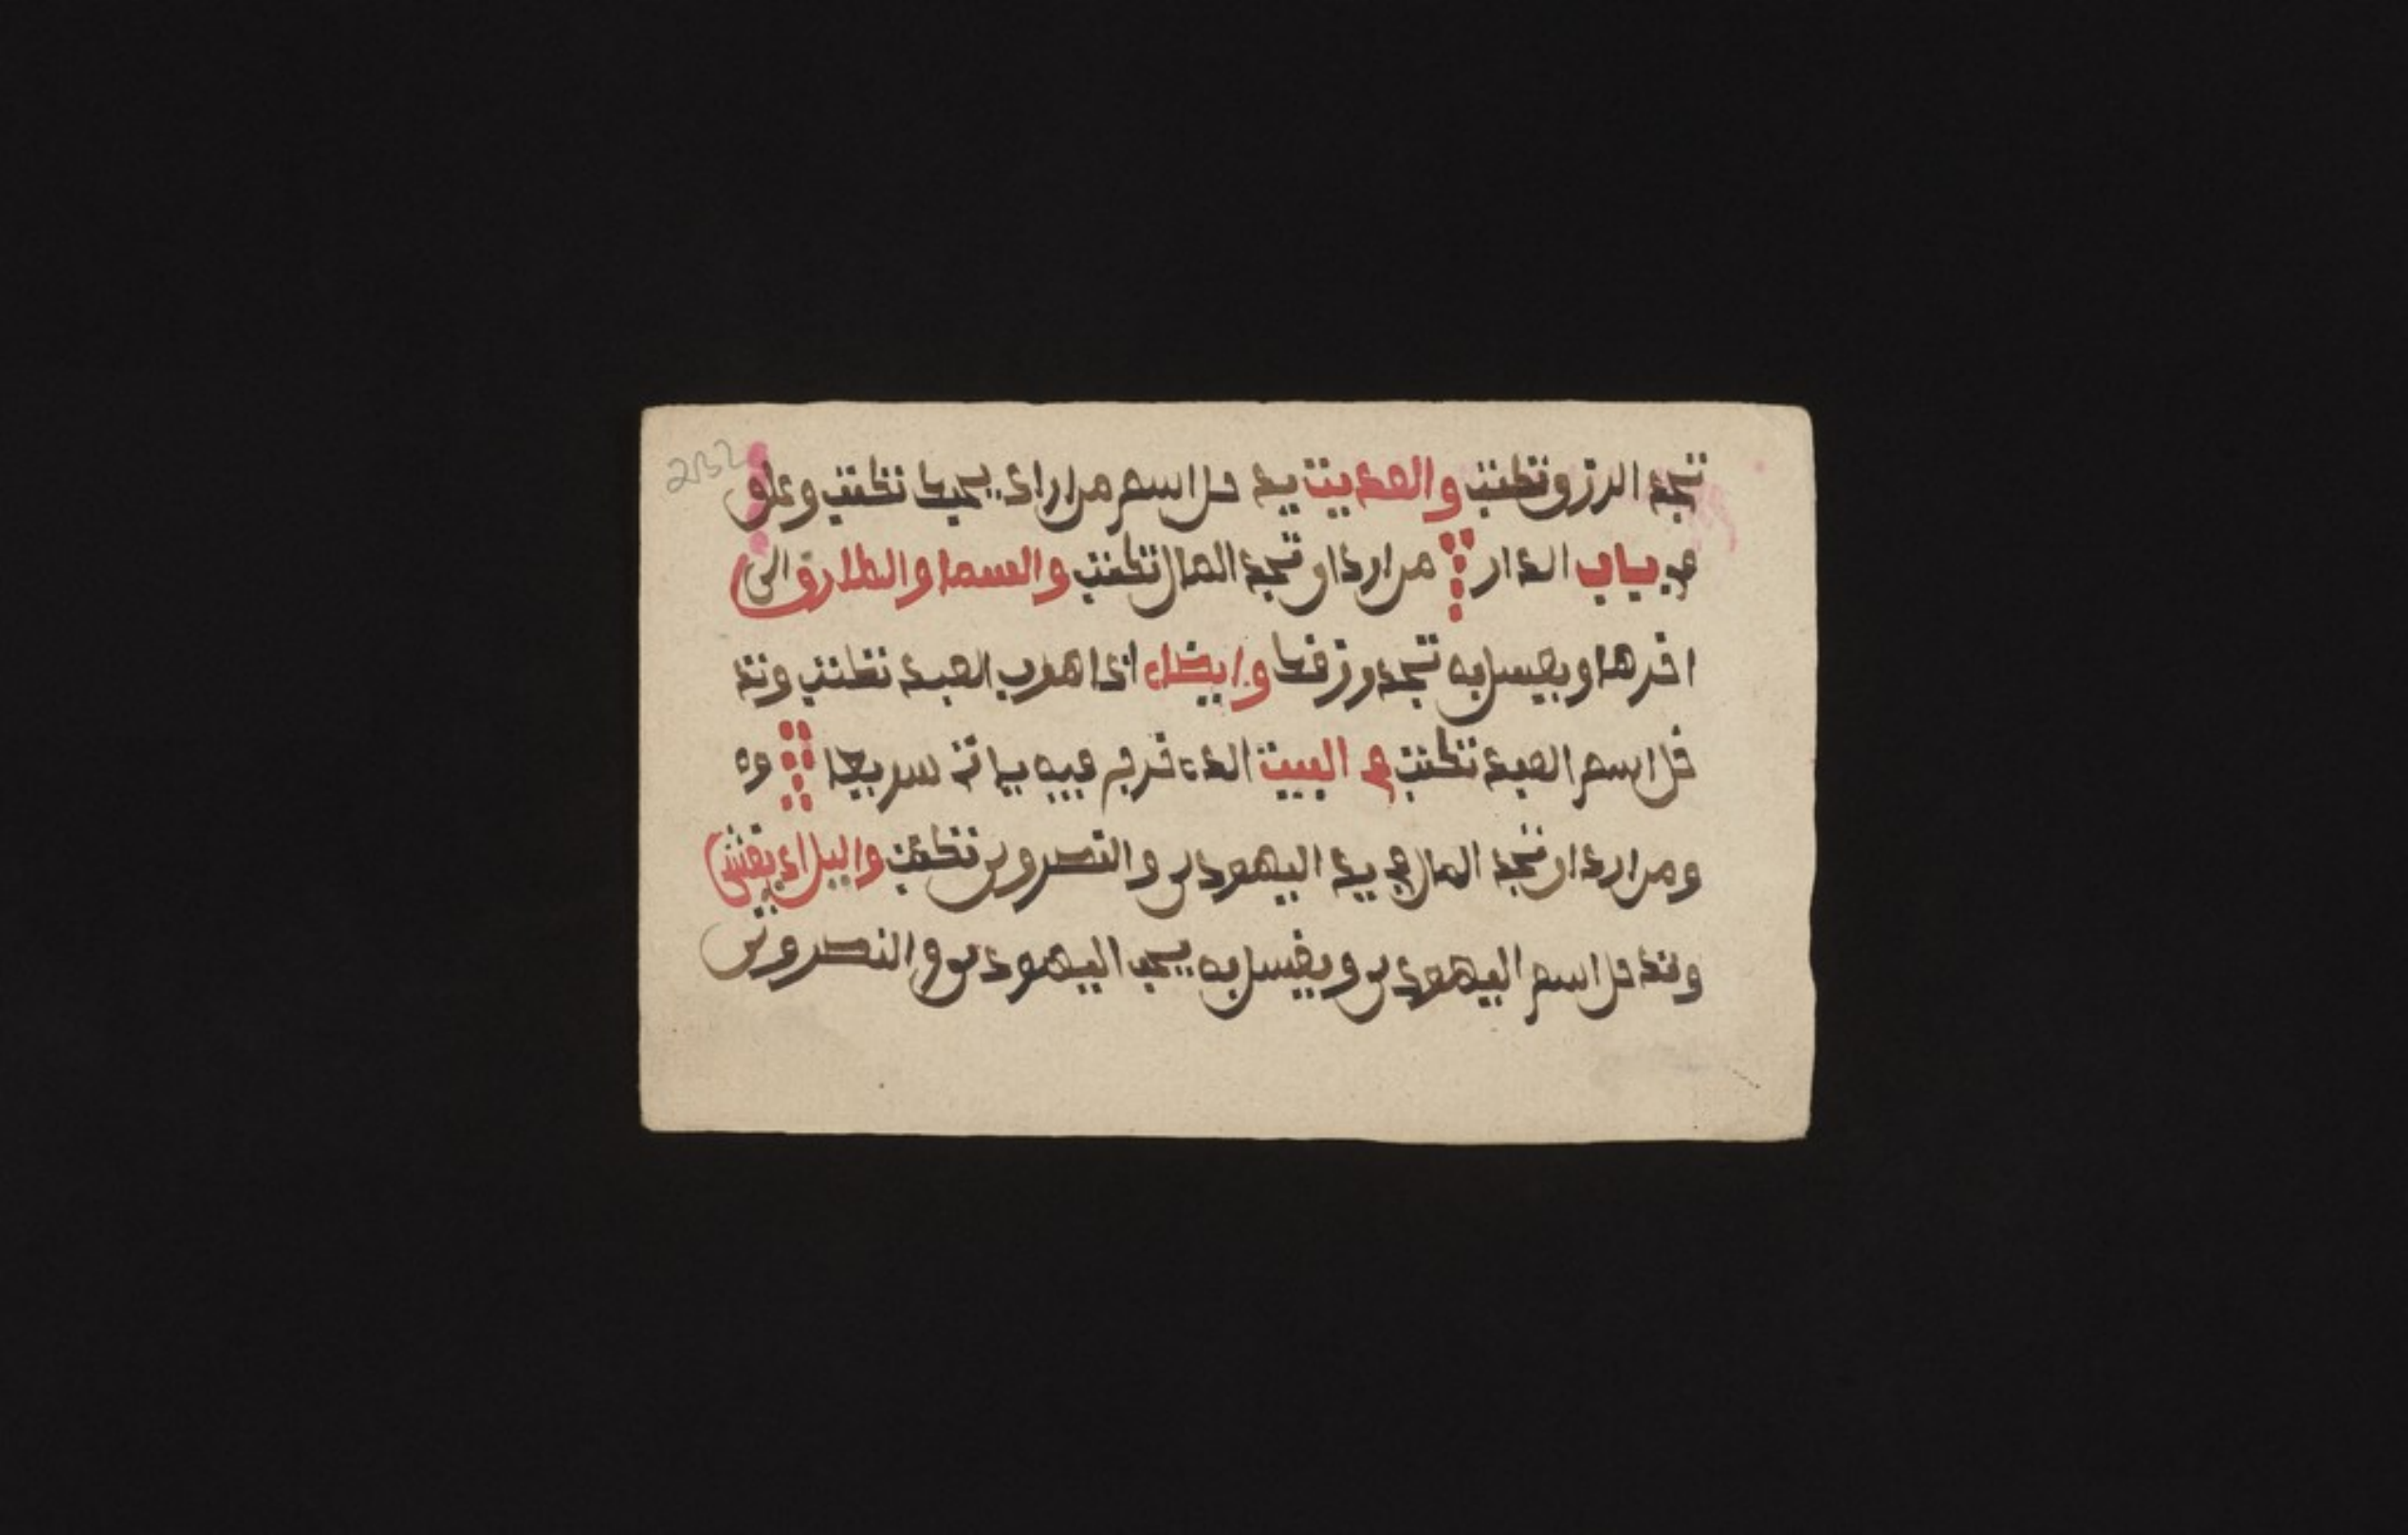 232
تجد الرزق وتكتب والعديت يد خل اسم من اراد يحبك تكتب وعلق
في بياب الدار من اراد ان تجد المال تكتب والسما والطارق الى
اخرها ويغسل به تجد رزقك وايضا اذا هرب العبد تكتب وتد
خل اسم العبد تكتب في البيت الذي خرج فيه يات سريعا وه
ومن اراد ان تجد المال في يد اليهودى والنصرون تكتب واليل اذا يغشى
وتد خل اسم اليهودى ويغسل به يحب اليهودى والنصرون